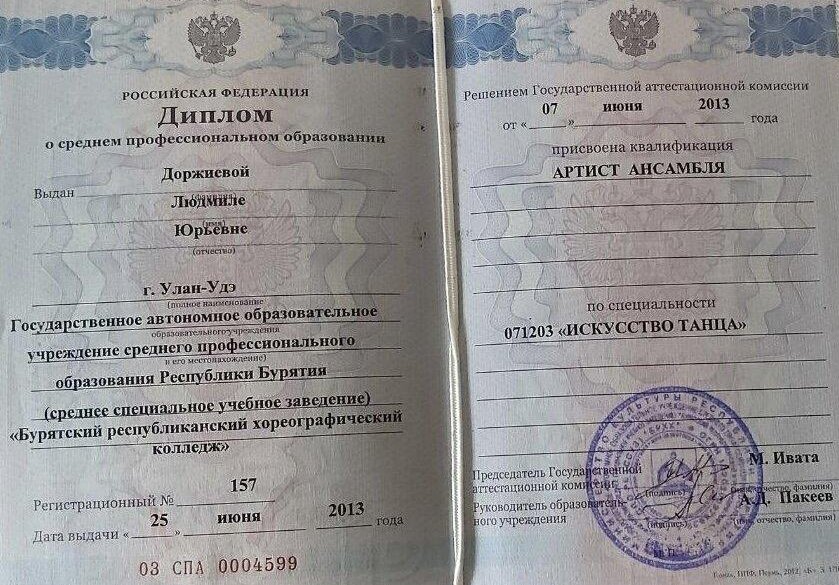 РОССИЙСКАЯ ФЕДЕРАЦИЯ
Диплом
о среднем профессиональном образовании
Доржиевой
Выдан
(фамилия)
Людмиле
(имя)
Юрьевне
(отчество)
г. Улан-Удэ
(полное наименование
Государственное автономное образовательное
образовательного учреждения
учреждение среднего профессионального
и его местонахождение)
образования Республики Бурятия
(среднее специальное учебное заведение)
«Бурятский республиканский хореографический
колледж»
Регистрационный № 157
Дата выдачи «25» июня 2013 года
03 СПА 0004599
Решением Государственной аттестационной комиссии
от «07» июня 2013 года
присвоена квалификация
АРТИСТ АНСАМБЛЯ
по специальности
071203 «ИСКУССТВО ТАНЦА»
Председатель Государственной
аттестационной комиссии
М. Ивата
(подпись) отчество, фамилия)
Руководитель образователь-
ного учреждения
А.Д. Пакеев
(подпись) отчество, фамилия)
М.П.